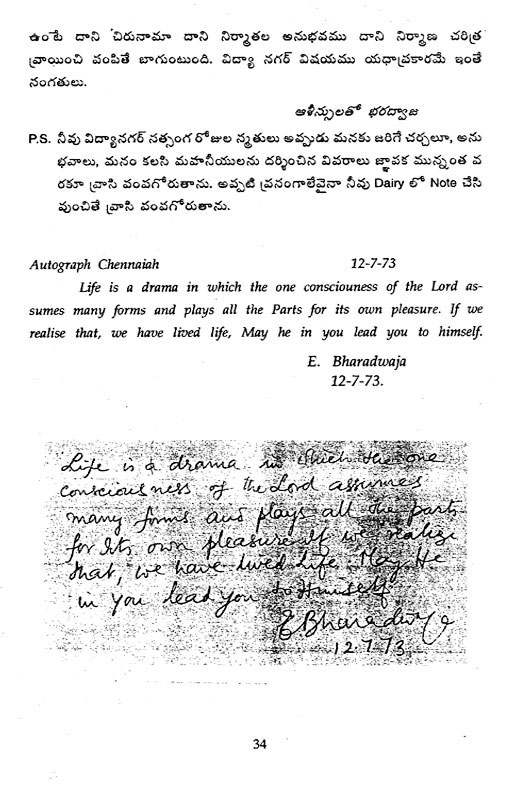 ఉంటే దాని చిరునామా దాని నిర్మాతల అనుభవము దాని నిర్మాణ చరిత్ర
వ్రాయించి వంపితే బాగుంటుంది. విద్యా నగర్ విషయము యధాప్రకారమే ఇంతే
నంగతులు.
ఆశీస్సులతో భరద్వాజ
P.S. నీవు విద్యానగర్ నత్సంగ రోజుల న్మతులు అప్పుడు మనకు జరిగే చర్చలూ, అను
భవాలు, మనం కలసి మహనీయులను దర్శించిన వివరాలు జ్ఞాపక మున్నంత వ
రకూ వ్రాసి వంవగోరుతాను. అప్పటి ప్రనంగాలేవైనా నీవు Dairy లో Note చేసి
వుంచితే వ్రాసి వంవగోరుతాను.
Autograph Chennaiah 12-7-73
Life is a drama in which the one consciouness of the Lord as-
sumes many forms and plays all the Parts for its own pleasure. If we
realise that, we have lived life, May he in you lead you to himself.
E. Bharadwaja
12-7-73.
Life is a drama in which the one
consciousness of the Lord assumes
many forms and plays all the parts
for Its own pleasure. If we realise
that, we have lived Life. May He
in you lead you to Himself
E Bharadwaja
12 7 73
34